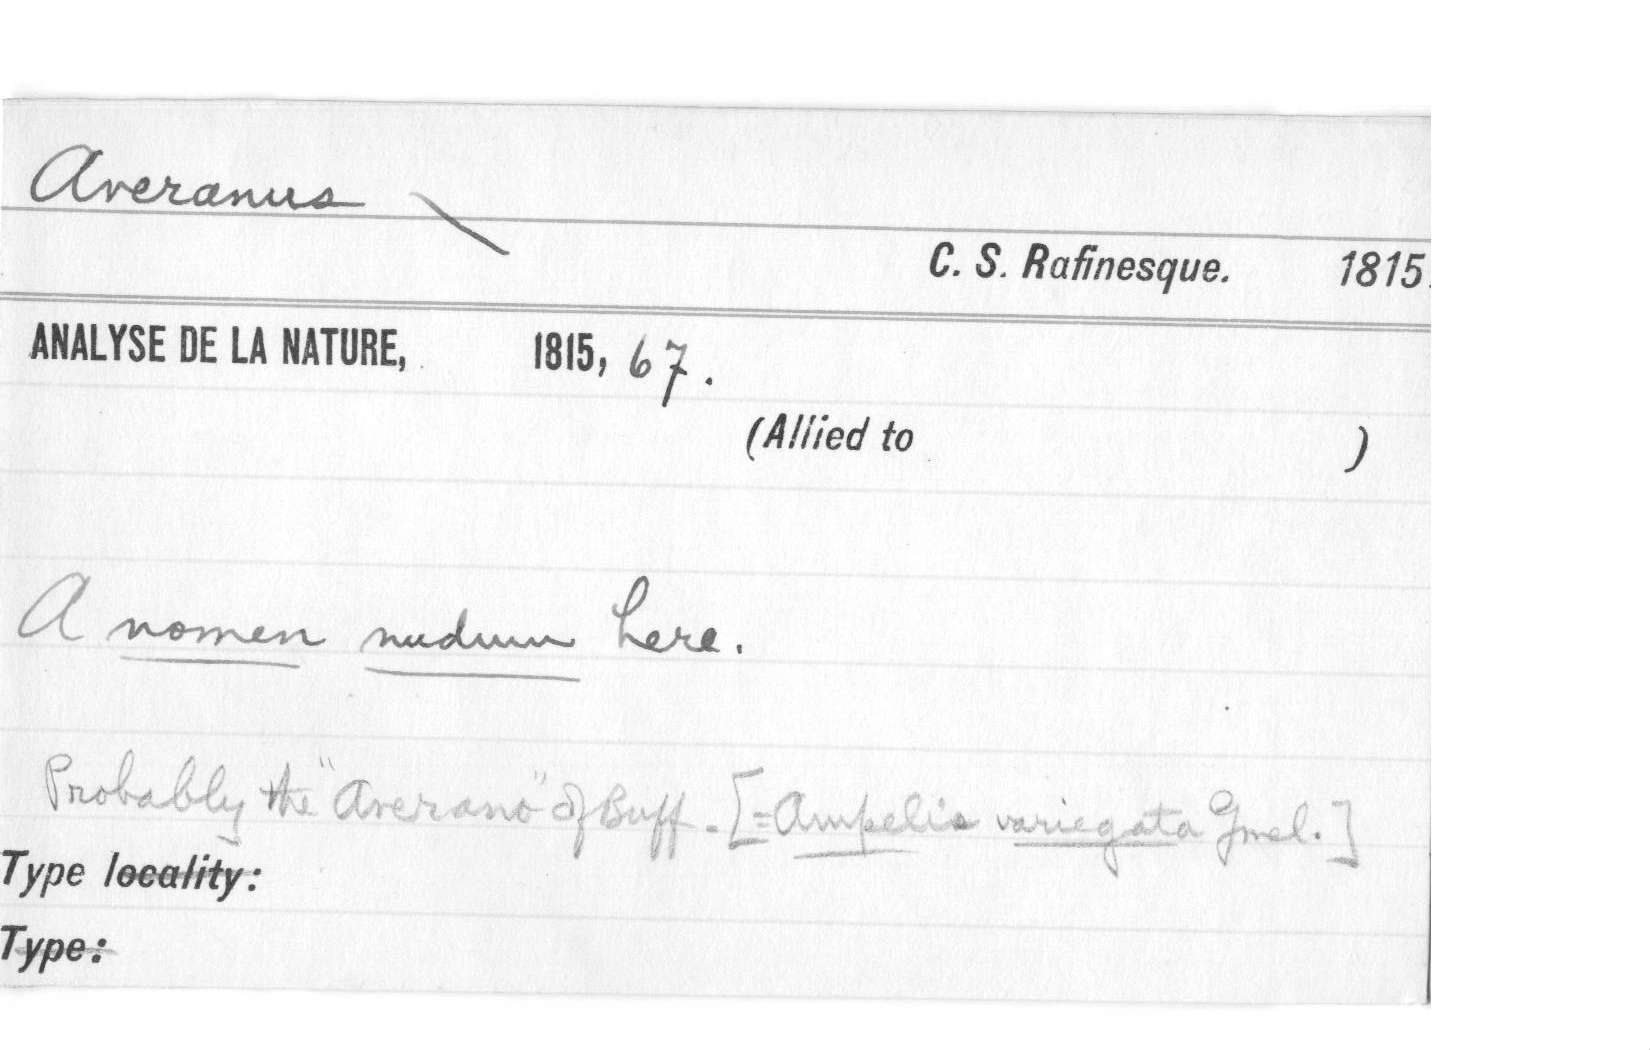 Averanus
C. S. Rafinesque. 1815.
ANALYSE DE LA NATURE, 1815, 67.
(Allied to )
A nomen nudum here.
Probably the "Averano" of Buff. [=Ampelis variegata Gmel.]
Type locality:
Type: